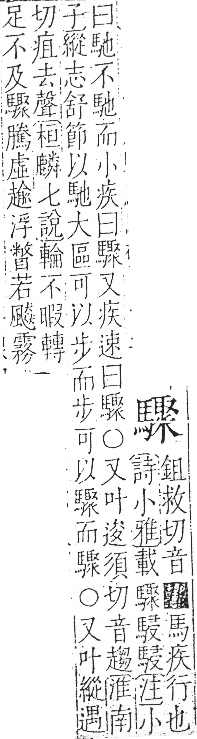 驟
鉏救切音馬疾行也
詩小雅載驟駸駸注小
曰馳不馳而小疾曰驟又疾速曰驟○又叶逡須切音趨淮南
子縱志舒節以馳大區可以步而步可以驟而驟○又叶縱遇
切疽去聲桓麟七說輪不暇轉
足不及驟騰虛浮瞥若飈霧